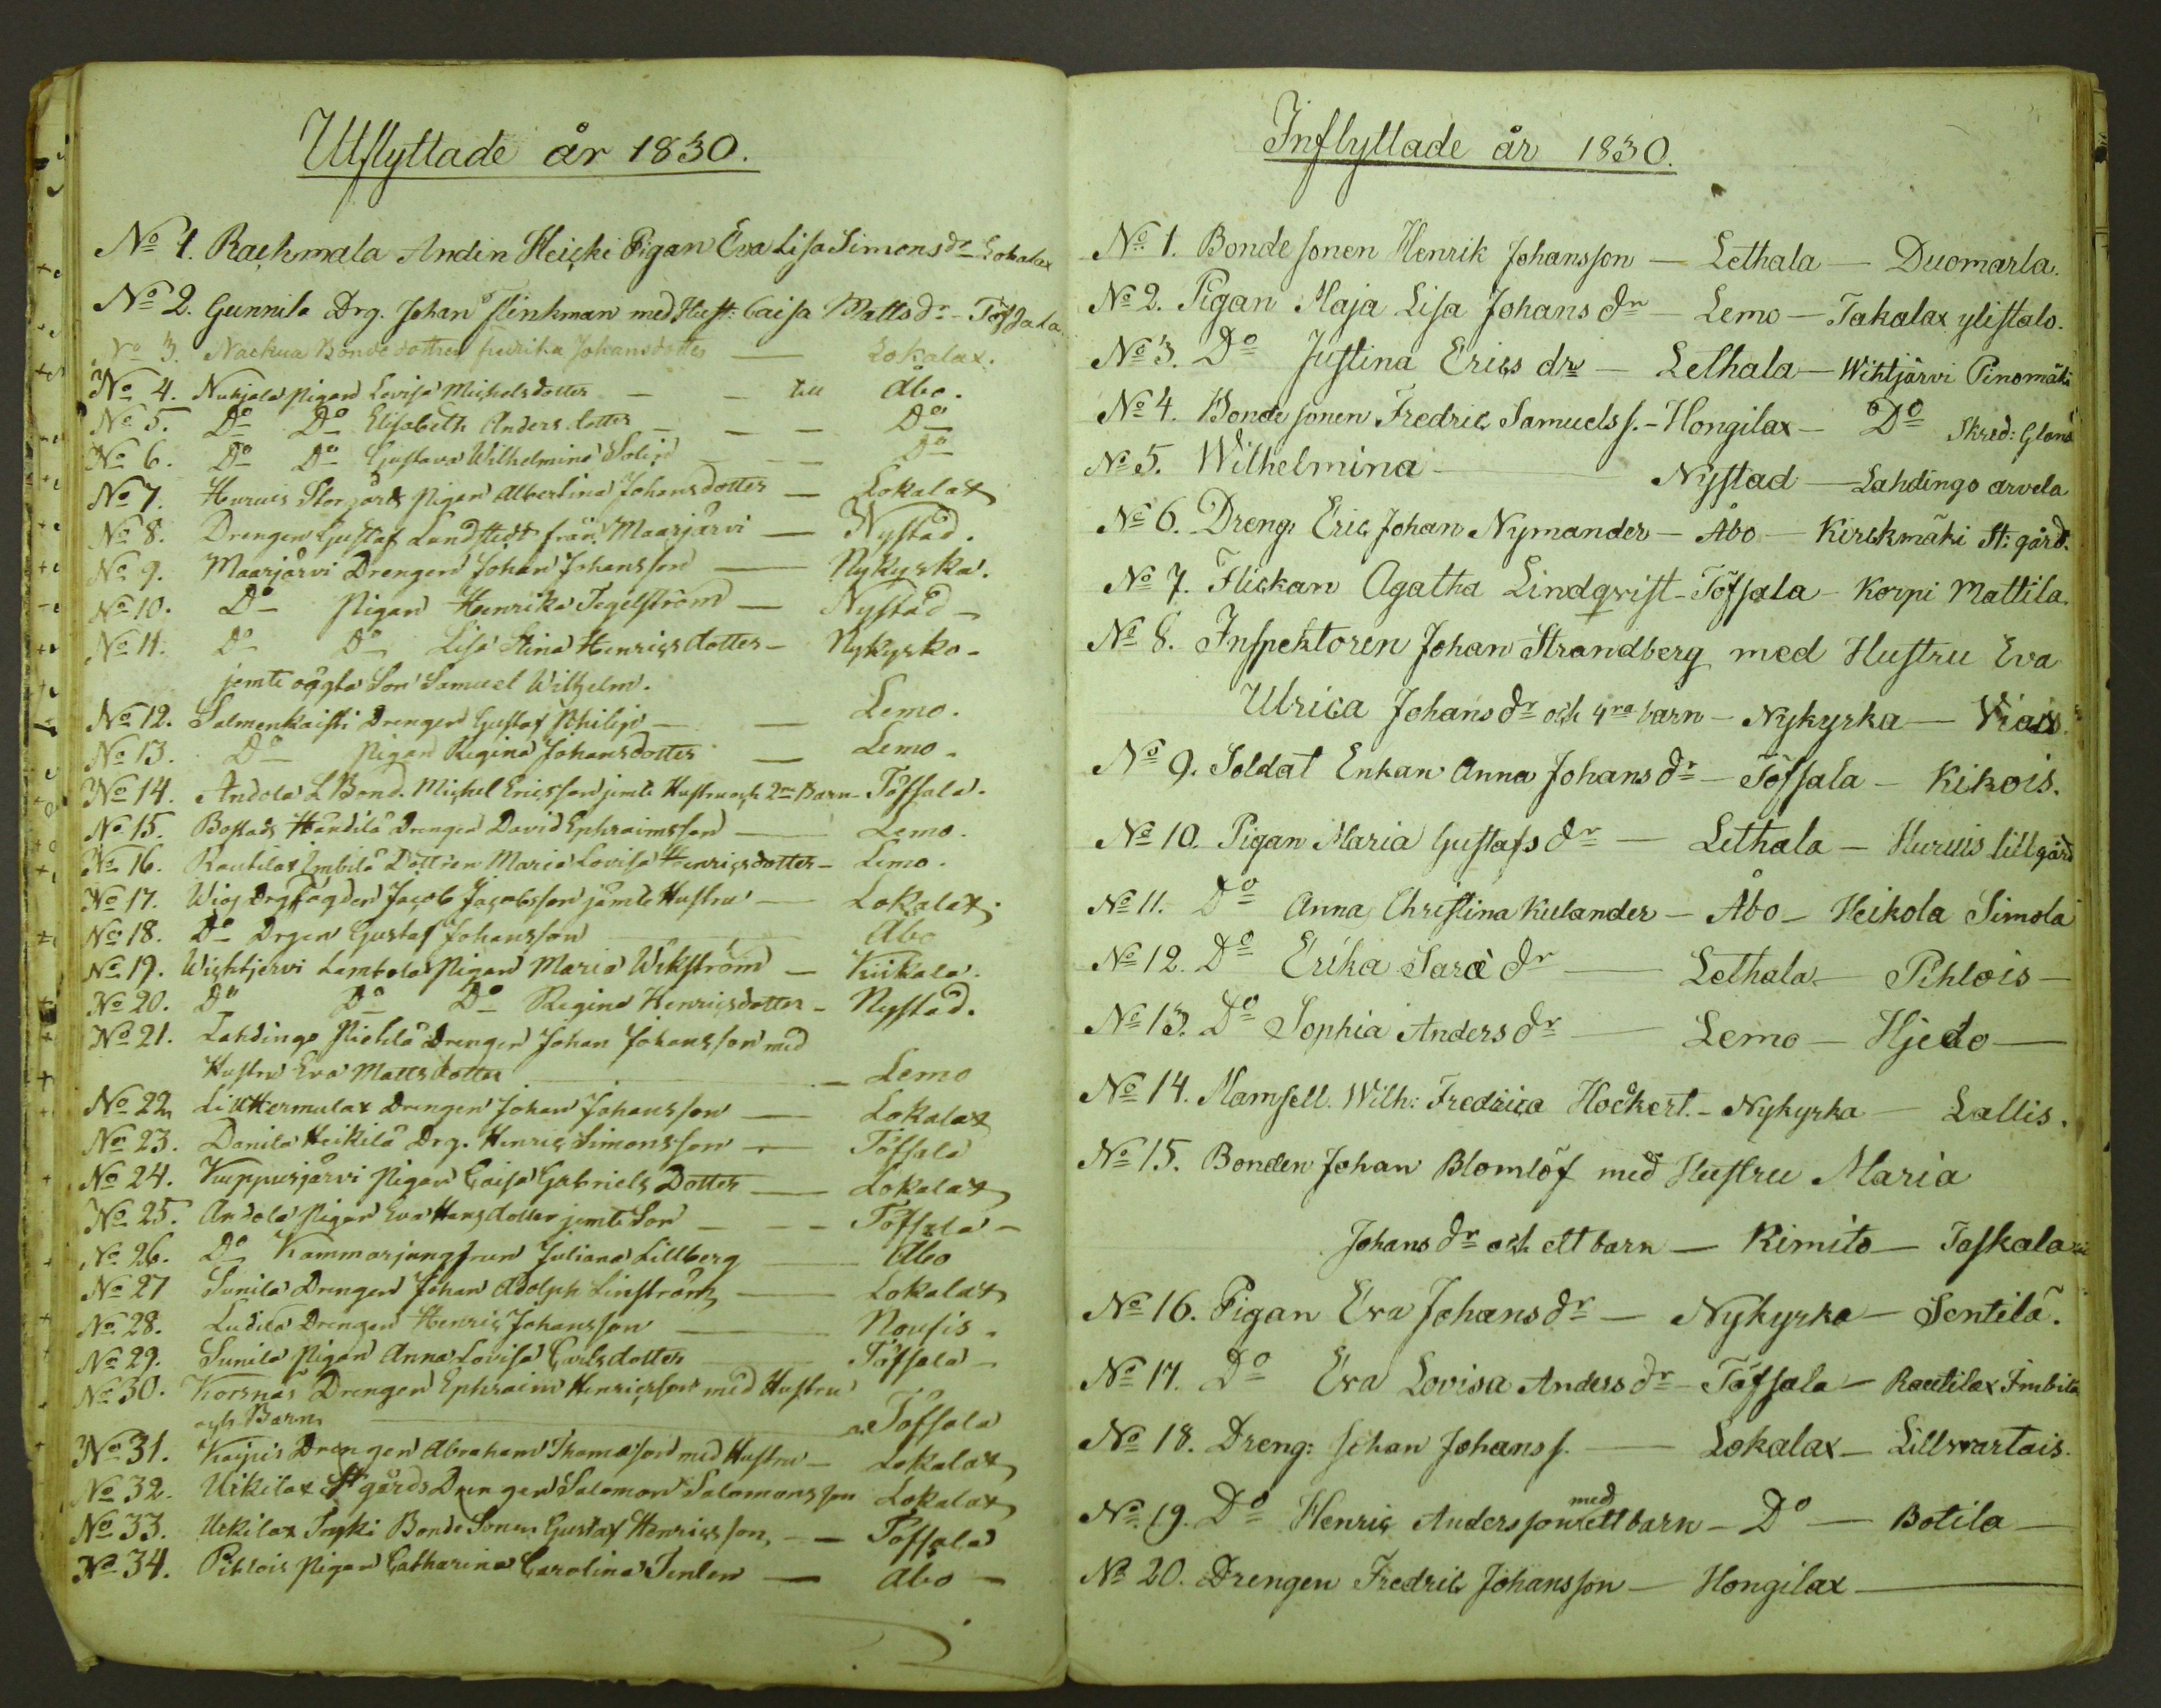 Utflyttade år 1830.
No 1. Rackmala Andin Heicki Pigan Eva Lisa Simonsdr Lokalax
No 2. Gunnila Drg. Johan Flinkman med Hust: Caisa Mattsdr - Töfsala
No 3. Naekua Bondedottren Fredrika Johansdotter — Lokalax.
No 4. Nuhjala pigan Lovisa Michelsdotter — till Åbo.
No 5. Do Do Elisabeth Andersdotter — — — Do
No 6. Do Do Gustava Wilhelmina — Do
No 7. Huruis Storgårds pigan Albertina Johansdotter — Lokalax
No 8. Drengen Gustaf Lundstedt från Maarjärvi — Nystad.
No 9. Maarjärvi Drengen Johan Johansson — Nykyrka.
No 10. Do pigan Henrika Tegelström — Nystad —
No 11. Do Do Lisa Stina Henricsdotter — Nykyrko -
jemte oägta Son Samuel Wilhelm.
No 12. Salmenkaisti Drengen Gustaf Philip — — Lemo.
No 13. Do pigan Regina Johansdotter — Lemo -
No 14. Andola L Bond. Michel Ericsson jemte Hustru och 2ne Barn - Töfsala.
No 15. Bostads Händilä Drengen David Ephraimsson — Lemo.
No 16. Rautilax Imbilä Döttren Maria Lovisa Henricsdotter — Lemo.
No 17. Wiais Drg Jacob Jacobsson jämte Hustru — Lokalax
No 18. Do Drgen Gustaf Johansson — Åbo
No 19. Wichtjervi Lambola pigan Maria Wikström — Kiikala.
No 20. Do Do Do Regina Henricsdotter - Nystad.
No 21. Lahdingo Pichla Drengen Johan Johansson med
Hustru Eva Mattsdotter — Lemo
No 22. Lill Hermulax Drengen Johan Johansson — Lokalax
No 23. Danila Heikilä Drg. Henric Simonsson — Töfsala
No 24. Kuppusjärvi pigan Caisa Gabriels Dotter — Lokalax
No 25. Andola pigan Eva Hansdotter jemte Son — — — Töfsala —
No 26. Do Kammarjungfrun Juliana Lillberg — Åbo
No 27 Sunila Drengen Johan Adolph Linström — Lokalax
No 28. Ludila Drengen Henric Johansson — Nousis.
No 29. Sunila pigan Anna Lovisa Carlsdotter — Töfsala —
No 30. Korsnäs Drengen Ephraim Henricsson med Hustru
och Barn — Töfsala
No 31. Kaijus Drengen Abraham Thomasson med Hustru — Lokalax
No 32. Uhkilax St gårds Drengen Salomon Salomonsson Lokalax
No 33. Uhkilax Inyki Bonde Sonen Gustaf Henricsson, — — Töfsala
No 34. Pihlois pigan Catharina Carolina Tenlen — Åbo —
Inflyttade år 1830.
No 1. Bonde sonen Henrik Johansson — Lethala — Duomarla.
No 2. Pigan Maja Lisa Johans dr — Lemo — Takalax ylistalo.
No 3. Do Justina Erics dr — Lethala — Wihtjärvi Pinomäki
No 4. Bonde sonen Fredric Samuels s. - Hongilax — Do Skred: Glans
No 5. Wilhelmina — Nystad — Lahdingo arvela
No 6. Dreng: Eric Johan Nymander — Åbo — Kirckmäki St: gård.
No 7. Flickan Agatha Lindqvist - Töfsala - Korpi Mattila.
No 8. Inspektoren Johan Strandberg med Hustru Eva
Ulrica Johans dr och 4ra barn — Nykyrka — Viais.
No 9. Soldat Enkan Anna Johans dr — Töfsala — Kikois.
No 10. Pigan Maria Gustafs dr — Lethala — Huruis lillgård
No 11. Do Anna Christina Kulander — Åbo — Heikola Simola
No 12. Do Erika Sara dr — Lethala — Pihlois —
No 13. Do Sophia Anders dr — Lemo — Hjedo —
No 14. Mamsell. Wilh: Fredrica Höckert. — Nykyrka — Lallis.
No 15. Bonden Johan Blomlöf med Hustru Maria
Johans dr och ett barn — Kimito — Taskala
No 16. Pigan Eva Johans dr — Nykyrka — Sentilä.
No 17. Do Eva Lovisa Anders dr — Töfsala — Rautilax Imbilä
No 18. Dreng: Johan Johans s. — Lokalax — Lillwartais.
No 19. Do Henric Andersson med ett barn — Do — Botila —
No 20. Drengen Fredric Johansson — Hongilax —